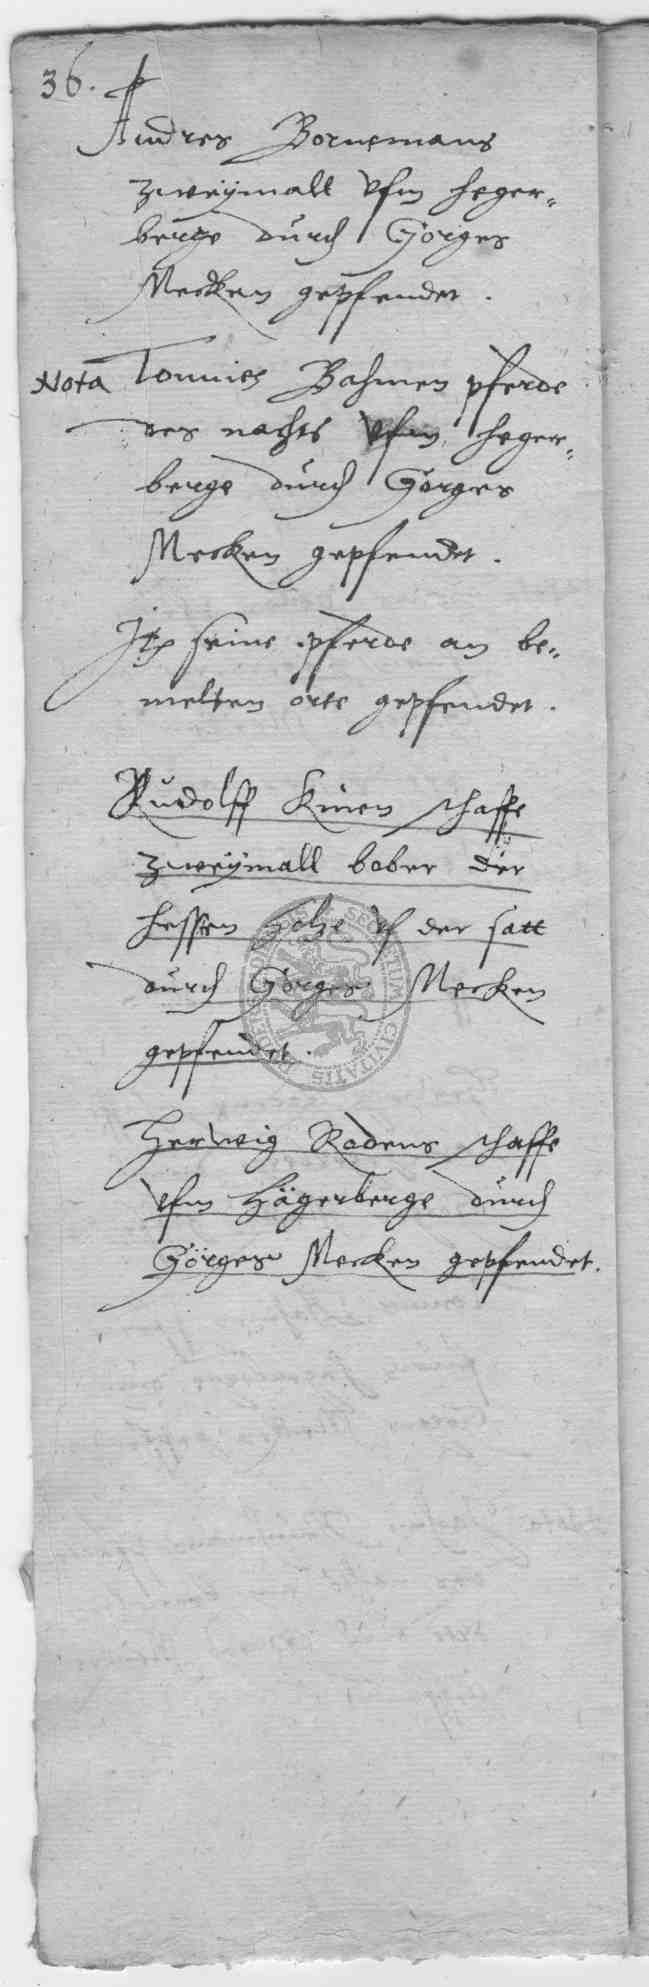 36.
Andres Bornemans
zweÿmall vfm heger-
berge durch Görges
Mecken gepfendet.
Nota Tonnies Bahmen pferde
des nachts vfm heger-
berge durch Görges
Mecken gepfendet.
Itz seine pferde an be-
melten orte gepfendet.
Rudolff Kinen schaffe
zweÿmall bober der
hessen vf der satt
durch Görges Mecken
gepfendet.
Herwig Rodens schaffe
vfm Hägerberge durch
Görges Mecken gepfendet.
SECRETUM CIVITATIS